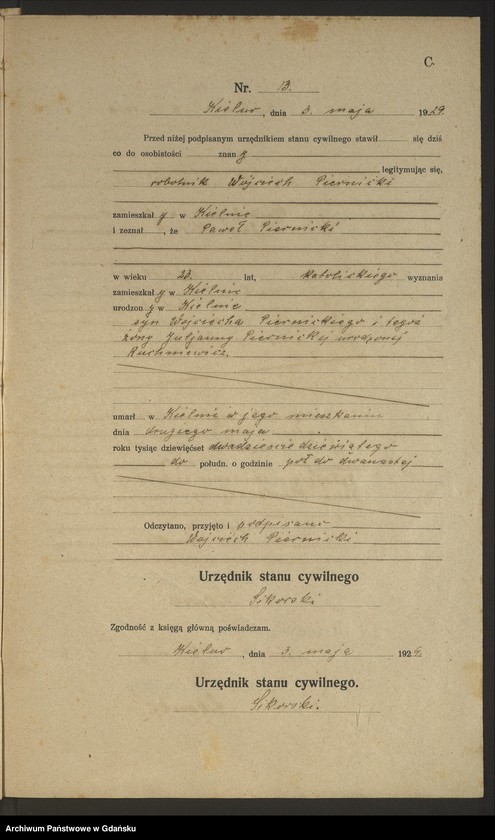 C.
Nr. 13.
Kielno, dnia 3. maja 1929.
Przed niżej podpisanym urzędnikiem stanu cywilnego stawił się dziś
co do osobistości znany
legitymując się,
robotnik Wojciech Piernicki
zamieszkał y w Kielnie
i zeznał, że Paweł Piernicki
w wieku 23. lat, katolickiego wyznania
zamieszkał y w Kielnie
urodzon y w Kielnie
syn Wojciecha Piernickiego i tegoż
żony Juljanny Piernickiej urodzonej
umarł w Kielnie w jego mieszkaniu
dnia drugiego maja
roku tysiąc dziewięćset dwudziestego dziewiątego
do połudn. o godzinie pół do dwunastej
Odczytano, przyjęto i podpisano
Wojciech Piernicki
Urzędnik stanu cywilnego
Sikorski
Zgodność z księgą główną poświadczam.
Kielno, dnia 3. maja 1929.
Urzędnik stanu cywilnego.
Sikorski.
Archiwum Państwowe w Gdańsku